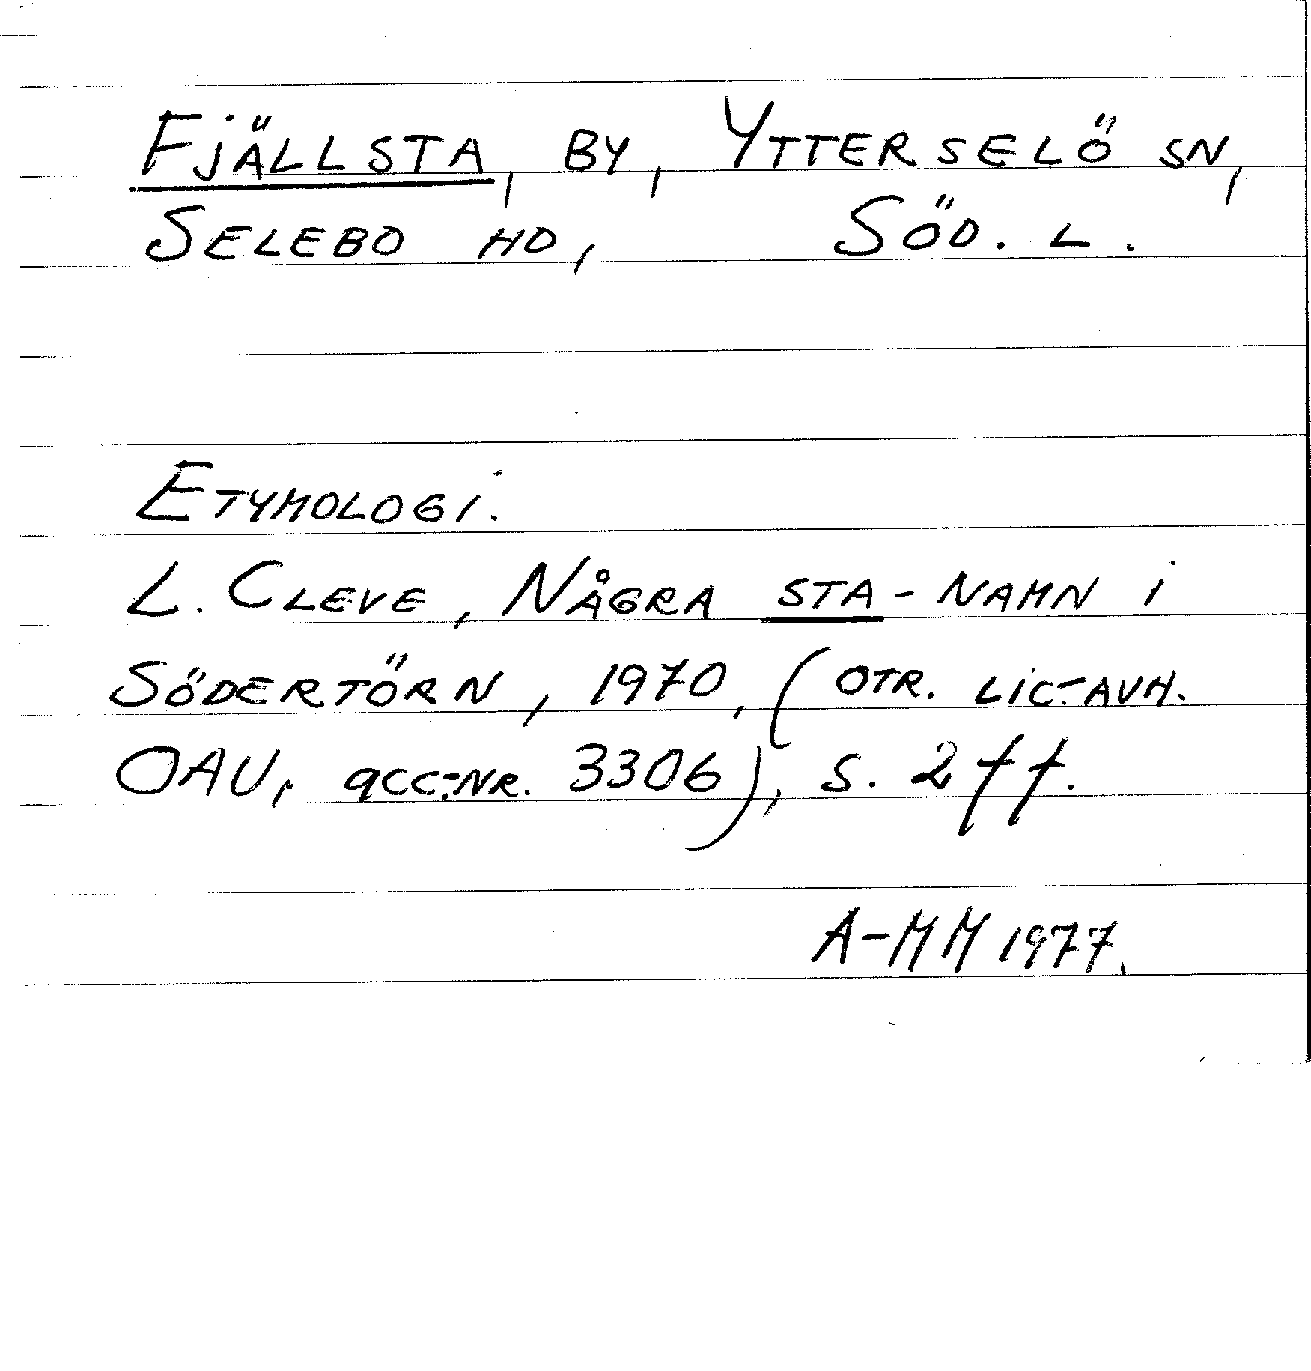 FJÄLLSTA, BY, YTTERSELÖ SN,
SELEBO HD, SÖD. L.
ETYMOLOGI.
L. CLEVE, NÅGRA STA-NAMN I
SÖDERTÖRN, 1970, (OTR. LIC.-AVH.
OAU, acc.-NR. 3306), S. 2 ff.
A-MM 1977.